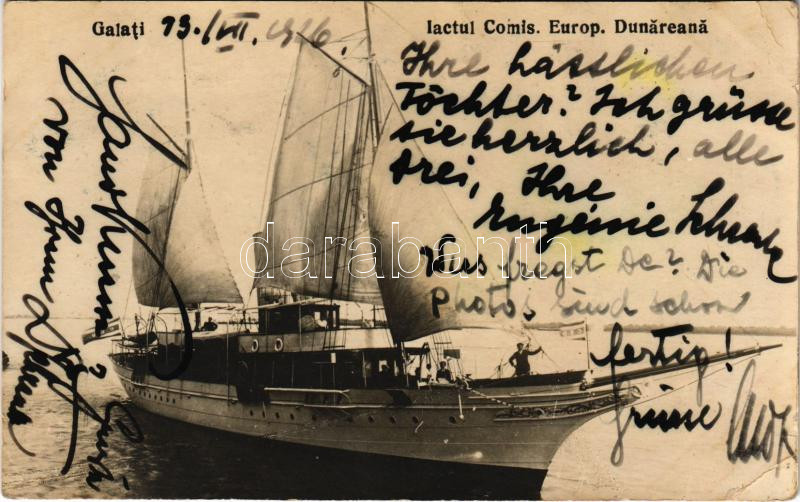 Galați
13./VII. 1926.
Iactul Comis. Europ. Dunăreană
Ihre hässlichen
Töchter? Ich grüsse
sie herzlich, alle
drei, Ihre
Eugenie
Was fragst De? Die
Photos sind schon
fertig!
Grüsse
von Ihrem
darabanth.com